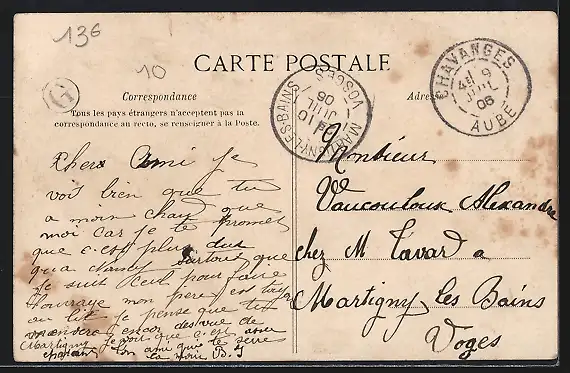 136
10
CARTE POSTALE
Correspondance
Tous les pays étrangers n'acceptent pas la
correspondance au recto, se renseigner à la Poste.
Adres
G
MARTIGNY-LES-BAINS VOSGES
10 JUIL 06
CHAVANGES AUBE
9 JUIL 06
Cher Ami Je
vois bien que tu
a moin chaud que
moi car je te promet
que c'est plus dur
qu'a surtout que
je suit seul pour faire
louvrage mon pere est
au lit je pense que tu
encor des vue de
Martigny Je vois que c'est assez
ton ami qui te serre
la main B. J
Monsieur
Vaucouloux Alexandre
chez M Tavard a
Martigny les Bains
Voges